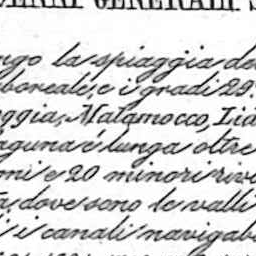 GENERALI
ngo la spiaggia de
boreale, e i gradi 29.
ggia, Malamocco, Lid
aguna è lunga oltre
mi e 20 minori rive
dove sono le valli
i i canali navigab